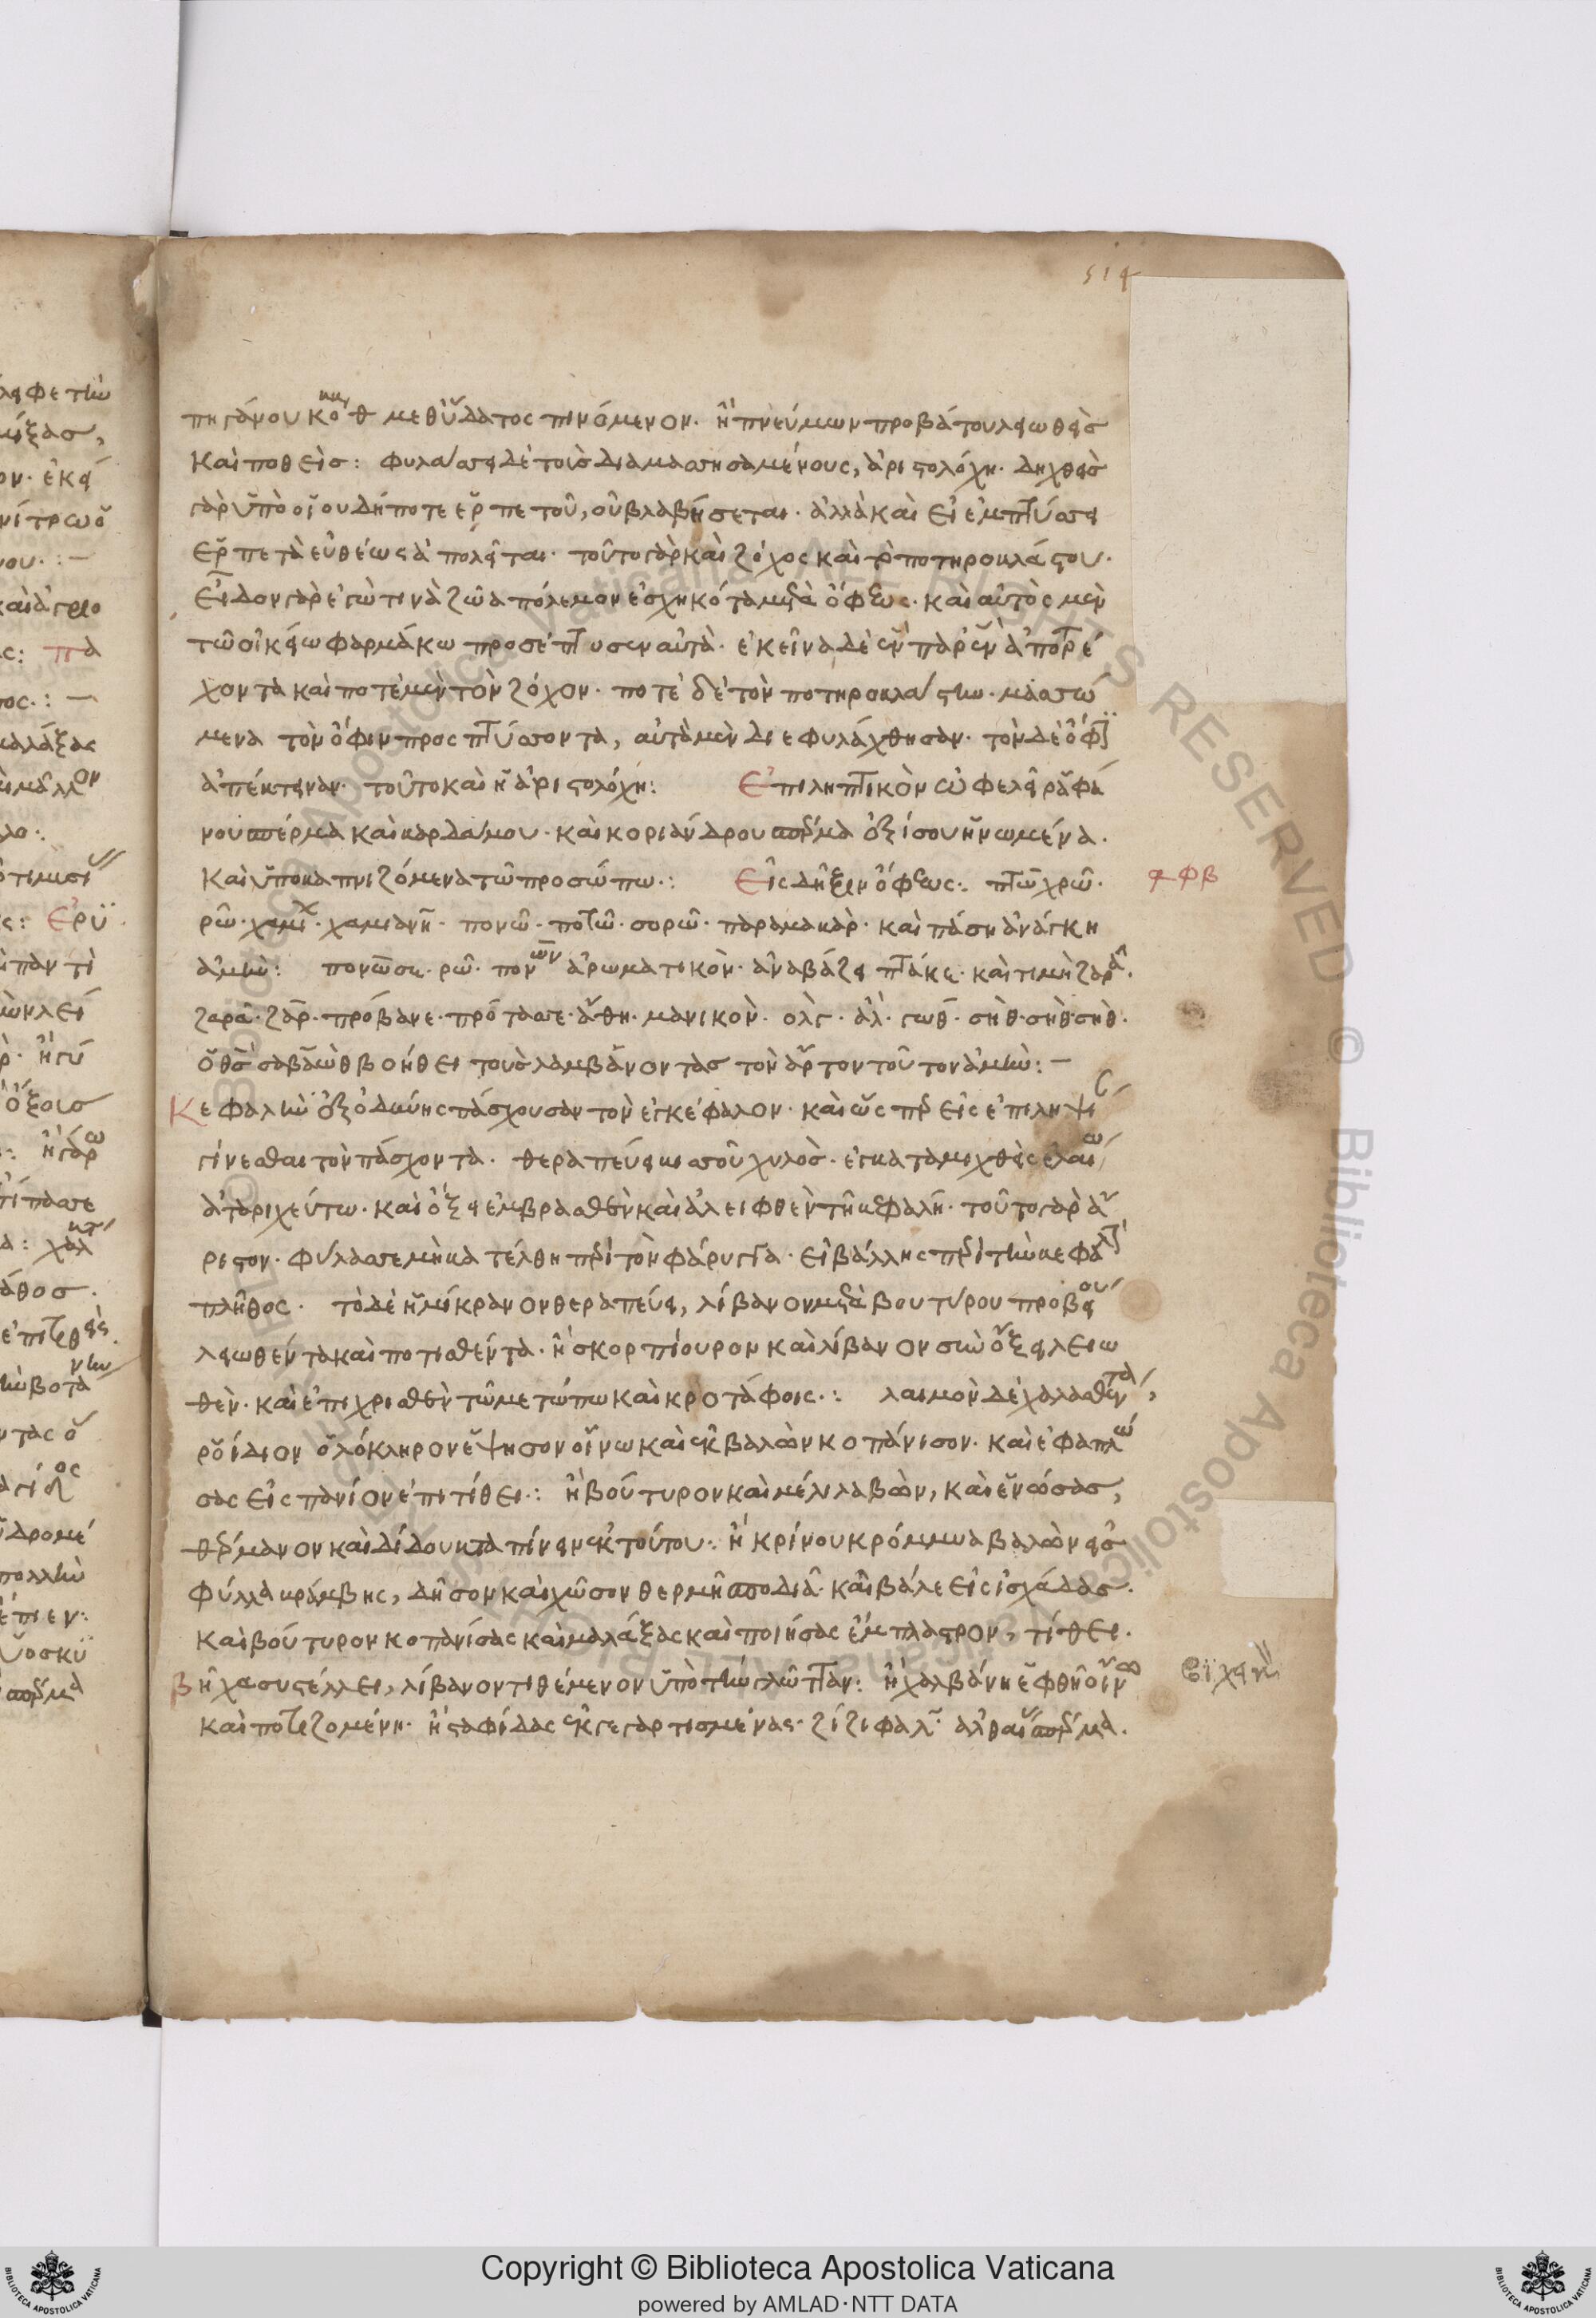 514
πηγάνου κο θ μεθ' ὕδατος πινόμενον· ἢ πνεύμων προβάτου λειωθεὶς
καὶ ποθείς: φυλάσσει δὲ τοὺς διαμασησαμένους, ἀριστολόχη· δηχθεὶς
γὰρ ὑπὸ οἵου δήποτε ἑρπετοῦ, οὐ βλαβήσεται· ἀλλὰ καὶ εἰ ἐμπτύσει
ἑρπετὰ εὐθέως ἀπολεῖται· τοῦτο γὰρ καὶ ζόχος καὶ τὸ ποτηροκλάστου·
εἶδον γὰρ ἐγώ τινα ζῶα πόλεμον ἐσχηκότα μετὰ ὄφεως· καὶ αὐτὸς μὲν
τῶ οἰκείω φαρμάκω προσέπτυσεν αὐτά· ἐκεῖνα δὲ ἓν παρ' ἓν ἀποτρέ
χοντα καὶ ποτὲ μὲν τὸν ζόχον· ποτὲ δὲ τὸν ποτηροκλάστην· μασσώ
μενα τὸν ὄφιν προσπτύσσοντα, αὐτὰ μὲν διεφυλάχθησαν· τὸν δὲ ὄφιν
ἀπέκτειναν· τοῦτο καὶ ἡ ἀριστολόχη: Ἐπιληπτικὸν ὠφελεῖ ῥαφά
νου σπέρμα καὶ καρδάμου· καὶ κοριάνδρου σπέρμα ἐξίσου ἡνωμένα·
καὶ ὑποκαπνιζόμενα τῶ προσώπω: Εἰς δῆξιν ὄφεως: πτῶ χρῶ·
ϟφβ
ρῶ· χαμϊ· χαμιανῆ· πονῶ· ποτῶ· σορῶ· παραμακάρ· καὶ πάση ἀνάγκη
ἀμήν: ἀρωματικόν· ἀναβάζει πτάκε· καὶ τιμὴ ζαρᾶ·
ζαρᾶ· ζάρ· πρόβανε· πρότασσε· ἄθη· μανικόν· ολς· ἀλ· γωθ· σὴθ· σὴθ· σὴθ·
ὁ θς σαβαὼθ βοήθει τοὺς λαμβάνοντας τὸν ἄρτον τοῦτον ἀμήν: –
Κεφαλὴν ἐξ ὀδύνης πάσχουσαν τὸν ἐγκέφαλον· καὶ ὡς πρ εἰς ἐπιληψι
γίνεσθαι τὸν πάσχοντα· θεραπεύει κισσοῦ χυλός· ἐγκαταμιχθεὶς ἐλαίω
ἀταριχεύτω· καὶ ὄξει ἐμβρασθὲν καὶ ἀλειφθὲν τῆ κεφαλῆ· τοῦτο γὰρ ἄ
ριστον· φύλασσε μὴ κατέλθη περὶ τὸν φάρυγγα· εἰ βάλλης περὶ τὴν κεφαλὴν
πλῆθος· τὸ δὲ ἡμίκρανον θεραπεύει, λίβανον μετὰ βουτύρου προβείου
λειωθέντα καὶ ποτισθέντα· ἢ σκορπίουρον καὶ λίβανον σὺν ὄξει λειω
θὲν· καὶ ἐπιχρισθὲν τῶ μετώπω καὶ κροτάφοις: λαιμὸν δὲ χαλασθέντα,
ῥοΐδιον ὁλόκληρον ἕψησον οἴνω καὶ ἐκβαλὼν κοπάνισον· καὶ ἐφαπλώ
σας εἰς πανίον ἐπιτίθει: ἢ βούτυρον καὶ μέλι λαβὼν, καὶ ἑνώσας,
θέρμανον καὶ δίδου κατὰ πίνειν ἐκ τούτου: ἢ κρίνου κρόμμυα βαλὼν εἰς
φύλλα κράμβης, δῆσον καὶ χῶσον θερμῆ σποδιᾶ· καὶ βάλε εἰς ἰσχάδας·
καὶ βούτυρον κοπανίσας καὶ μαλάξας καὶ ποιήσας ἔμπλαστρον, τίθει·
Βῆχα συστέλλει, λίβανον τιθέμενον ὑπὸ τὴν γλῶτταν: ἢ χαλβάνη ἑφθῆ οἴνω
καὶ ποτιζομένη· ἢ σταφίδας ἐκγεγαρτισμένας· ζίζιφα λ· ἀλθαί σπέρμα·